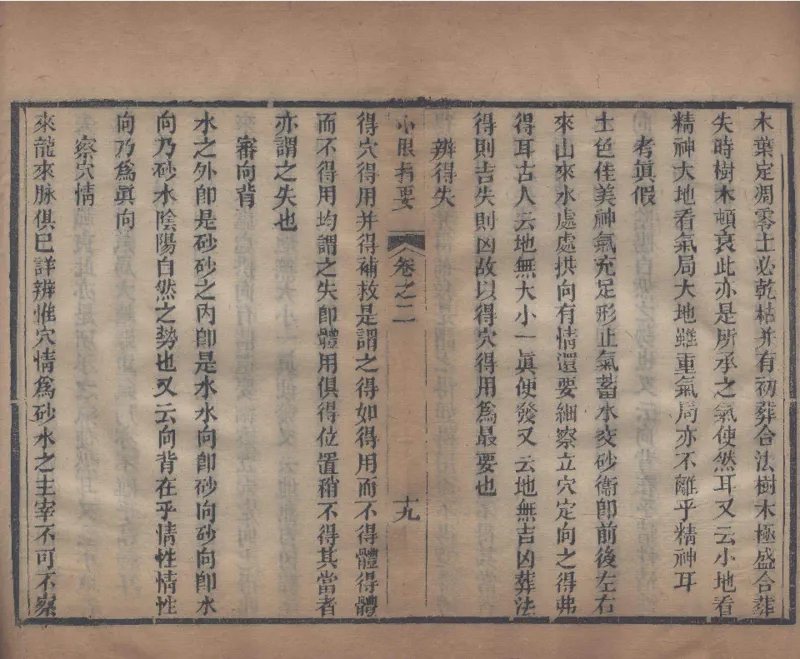 木葉定凋零土必乾枯并有初葬合法樹木極盛合葬
失時樹木頓衰此亦是所承之氣使然耳又云小地看
精神大地看氣局大地雖重氣局亦不離乎精神耳
考眞假
土色佳美神氣充足形止氣蓄水交砂衞卽前後左右
來山來水處處拱向有情還要細察立穴定向之得弗
得耳古人云地無大小一眞便發又云地無吉凶葬法
得則吉失則凶故以得穴得用爲最要也
辨得失
卷之二
十九
得穴得用并得補救是謂之得如得用而不得體得體
而不得用均謂之失卽體用俱得位置稍不得其當者
亦謂之失也
審向背
水之外卽是砂砂之內卽是水水向卽砂向砂向卽水
向乃砂水陰陽自然之勢也又云向背在乎情性情性
向乃爲眞向
察穴情
來龍來脉俱已詳辨惟穴情爲砂水之主宰不可不察